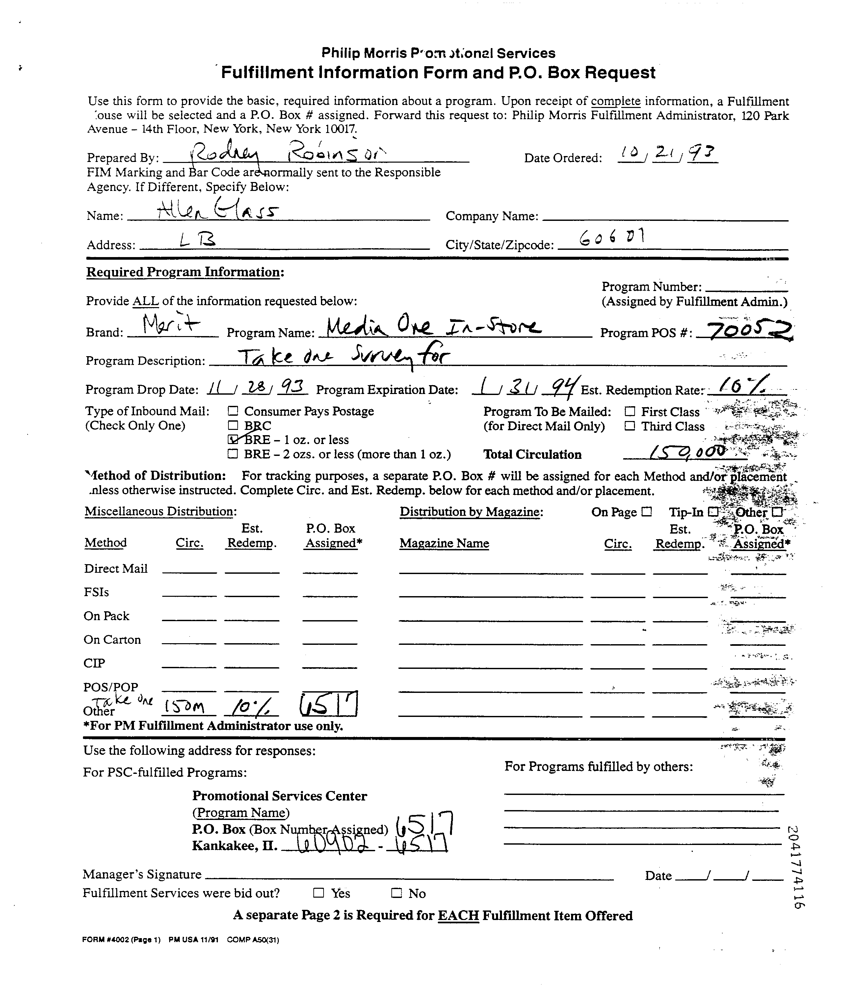 Philip Morris Promotional Services
Fulfillment Information Form and P.O. Box Request
Use this form to provide the basic, required information about a program. Upon receipt of complete information, a Fulfillment
ouse will be selected and a P.O. Box # assigned. Forward this request to: Philip Morris Fulfillment Administrator, 120 Park
Avenue – 14th Floor, New York, New York 10017.
Prepared By: Rodney Robinson Date Ordered: 10/21/93
FIM Marking and Bar Code are normally sent to the Responsible
Agency. If Different, Specify Below:
Name: Allen Glass Company Name:
Address: LB City/State/Zipcode: 60601
Required Program Information:
Program Number:
Provide ALL of the information requested below: (Assigned by Fulfillment Admin.)
Brand: Merit Program Name: Media One In-Store Program POS #: 70052
Program Description: Take one Survey for
Program Drop Date: 11/28/93 Program Expiration Date: 1/31/94 Est. Redemption Rate: 10%
Type of Inbound Mail: ☐ Consumer Pays Postage Program To Be Mailed: ☐ First Class
(Check Only One) ☐ BRC (for Direct Mail Only) ☐ Third Class
☑ BRE – 1 oz. or less
☐ BRE – 2 ozs. or less (more than 1 oz.) Total Circulation 150,000
Method of Distribution: For tracking purposes, a separate P.O. Box # will be assigned for each Method and/or placement
nless otherwise instructed. Complete Circ. and Est. Redemp. below for each method and/or placement.
Miscellaneous Distribution: Distribution by Magazine: On Page ☐ Tip-In ☐ Other ☐
Est. P.O. Box Est. P.O. Box
Method Circ. Redemp. Assigned* Magazine Name Circ. Redemp. Assigned*
Direct Mail
FSIs
On Pack
On Carton
CIP
POS/POP
Take one
Other 150M 10% 6517
*For PM Fulfillment Administrator use only.
Use the following address for responses:
For PSC-fulfilled Programs: For Programs fulfilled by others:
Promotional Services Center
(Program Name)
P.O. Box (Box Number Assigned) 6517
Kankakee, Il. 60902 - 6517
Manager's Signature Date / /
Fulfillment Services were bid out? ☐ Yes ☐ No
A separate Page 2 is Required for EACH Fulfillment Item Offered
FORM #4002 (Page 1) PM USA 11/91 COMP A50(31)
2041774116